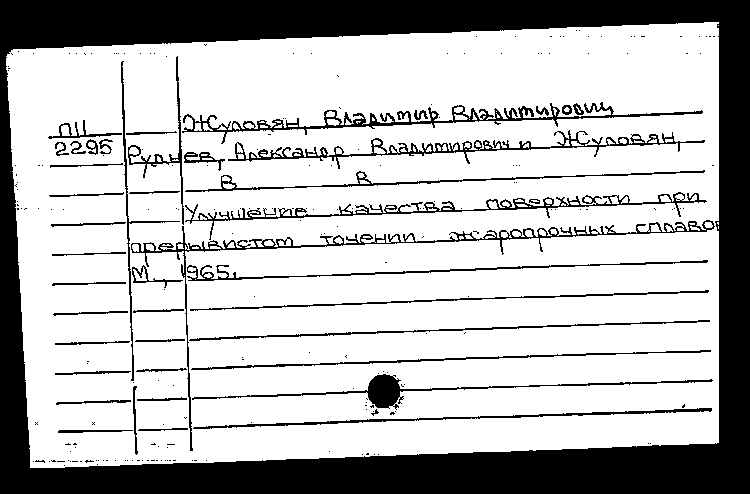 П11 Жуловян, Владимир Владимирович
2295 Руднев, Александр Владимирович и Жуловян,
В В
Улучшение качества поверхности при
прерывистом точении жаропрочных сплавов
М., 1965.